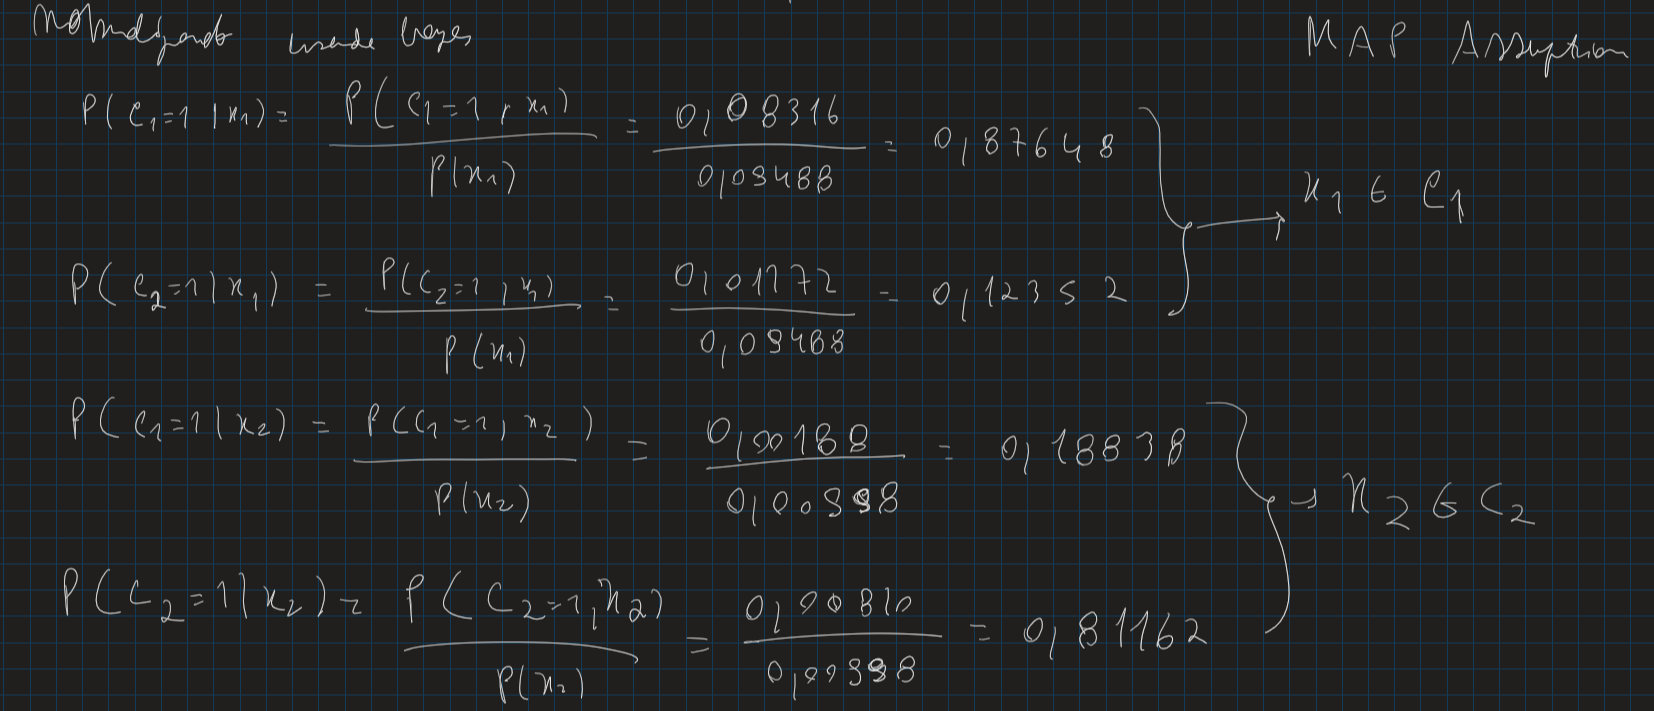 Normalizando usando bayes MAP Assumption
P(C₁=1 | x₁) = P(C₁=1, x₁) / P(x₁) = 0,08316 / 0,09488 = 0,87648
x₁ ∈ C₁
P(C₂=1 | x₁) = P(C₂=1, x₁) / P(x₁) = 0,01172 / 0,09488 = 0,12352
P(C₁=1 | x₂) = P(C₁=1, x₂) / P(x₂) = 0,00188 / 0,00998 = 0,18838
→ x₂ ∈ C₂
P(C₂=1 | x₂) = P(C₂=1, x₂) / P(x₂) = 0,00810 / 0,00998 = 0,81162